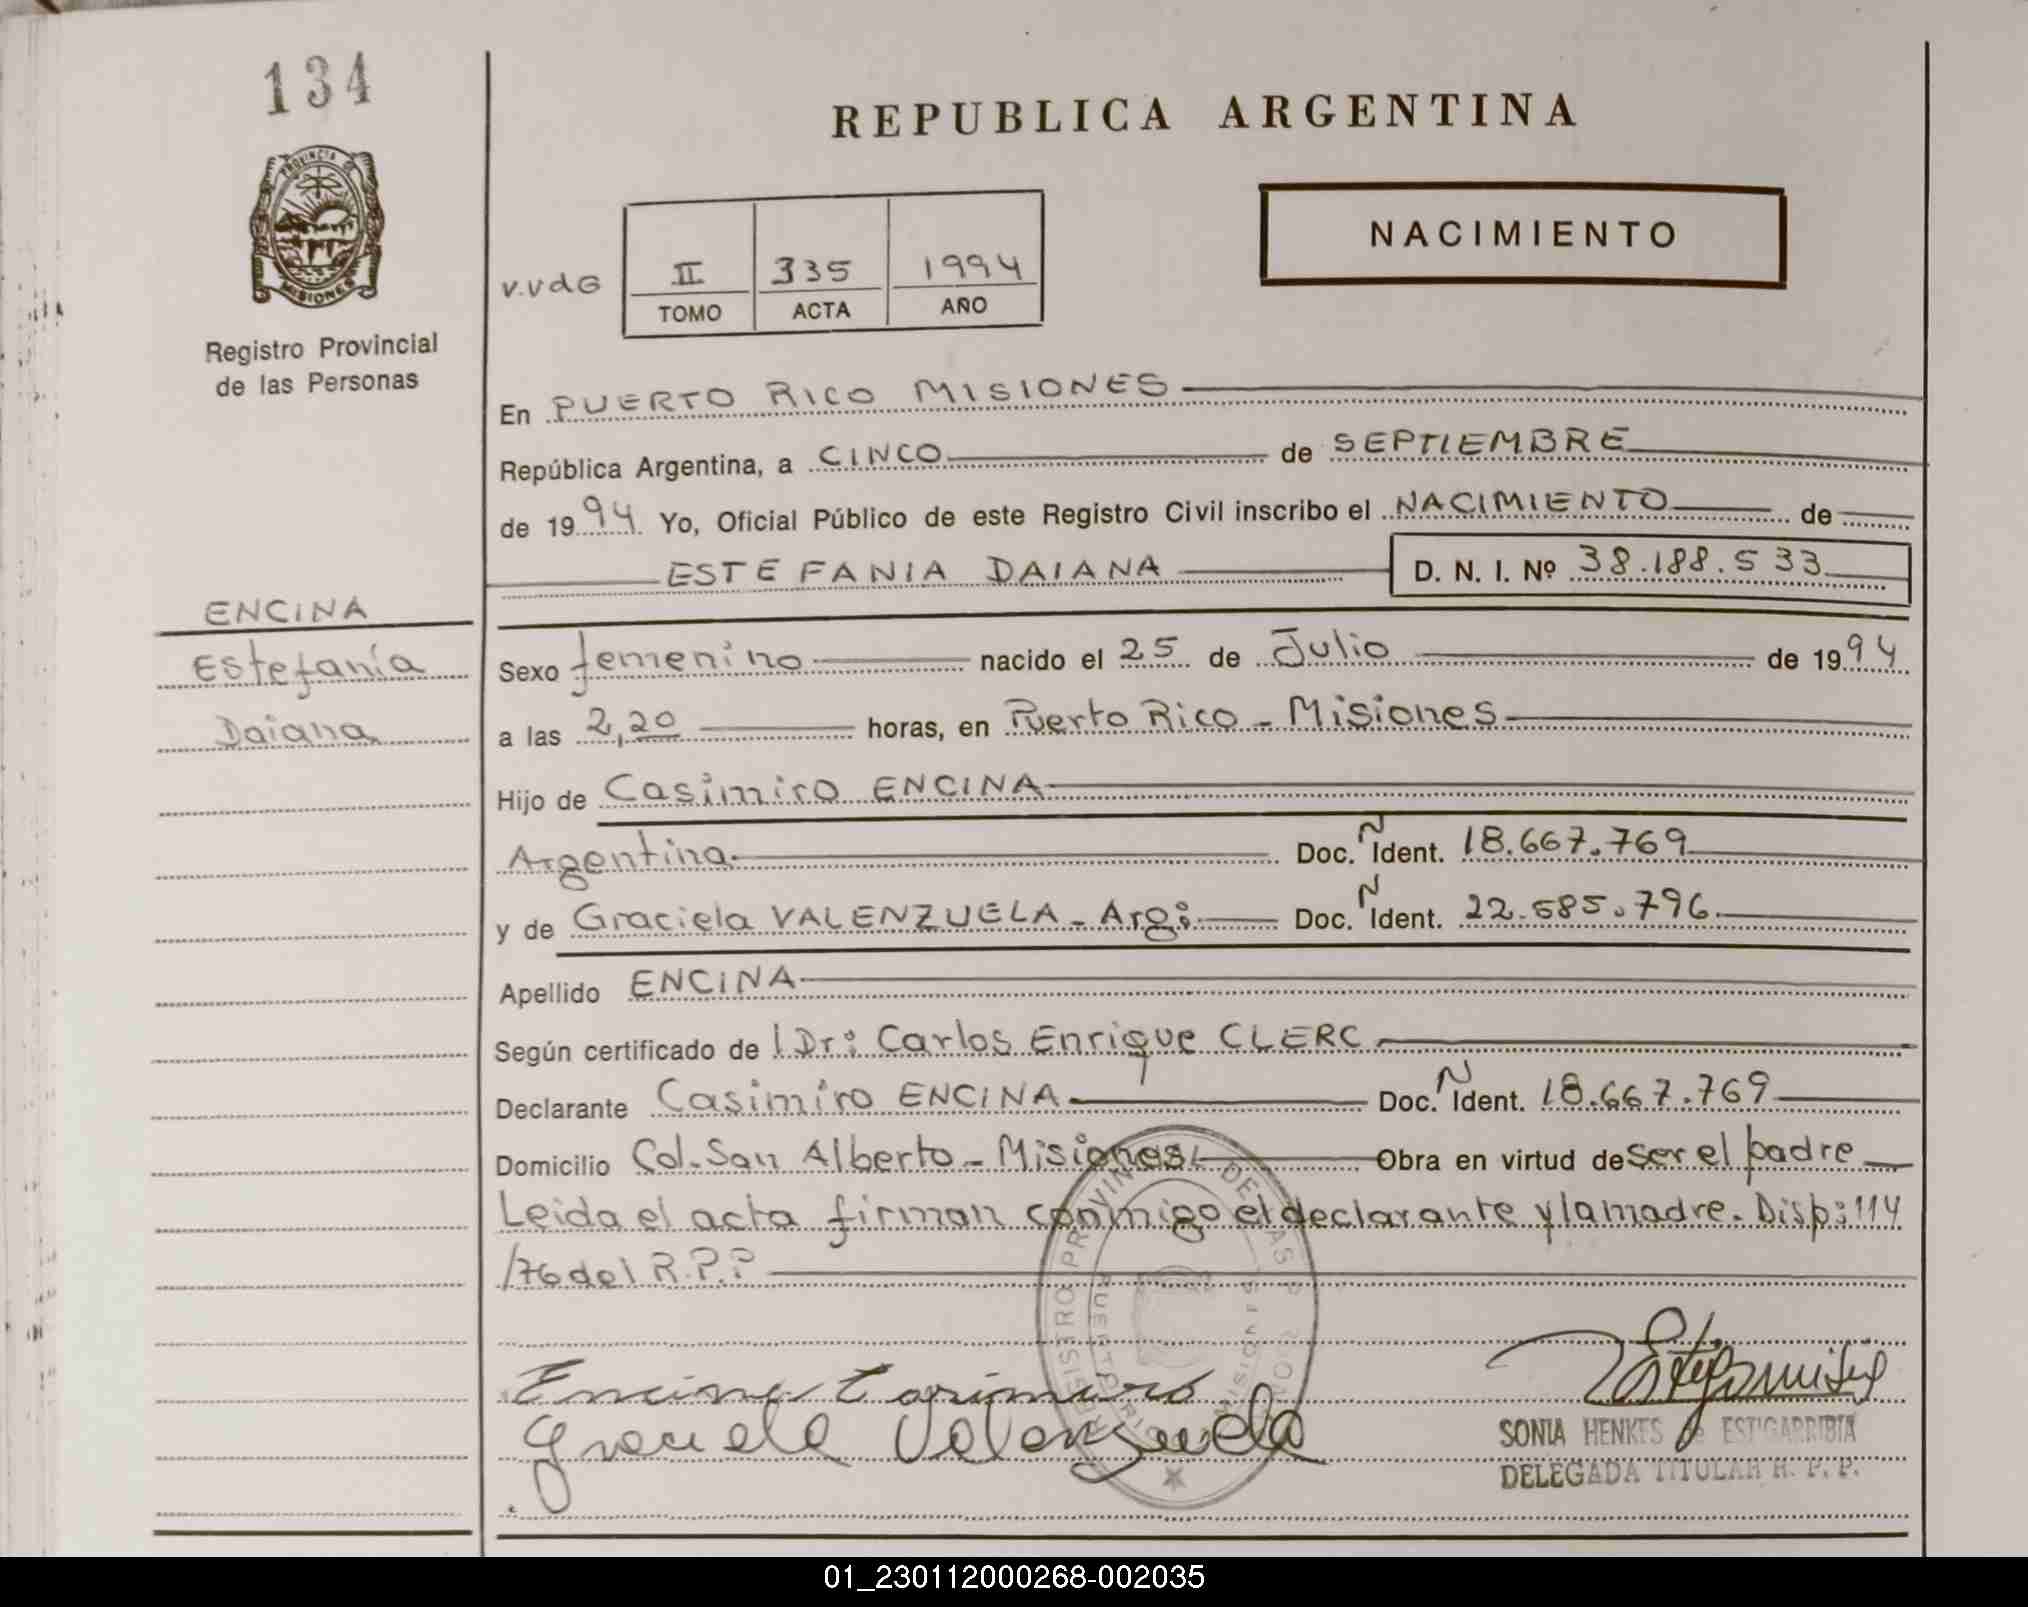 134
REPUBLICA ARGENTINA
PROVINCIA DE
MISIONES
NACIMIENTO
V.VdG
II 335 1994
TOMO ACTA AÑO
Registro Provincial
de las Personas
En PUERTO RICO MISIONES
República Argentina, a CINCO de SEPTIEMBRE
de 1994. Yo, Oficial Público de este Registro Civil inscribo el NACIMIENTO de
ESTEFANIA DAIANA D. N. I. Nº 38.188.533
ENCINA
Estefanía
Daiana
Sexo femenino nacido el 25 de Julio de 1994
a las 2,20 horas, en Puerto Rico - Misiones
Hijo de Casimiro ENCINA
Argentina Doc. N Ident. 18.667.769
y de Graciela VALENZUELA - Arg: Doc. N Ident. 22.585.796
Apellido ENCINA
Según certificado de l Dr: Carlos Enrique CLERC
Declarante Casimiro ENCINA Doc. N Ident. 18.667.769
Domicilio Col. San Alberto - Misiones Obra en virtud de ser el padre
Leida el acta firman conmigo el declarante y la madre. Disp: 114
/76 del R.P.P
Encina Casimiro
Graciela Valenzuela
SONIA HENKES de ESTIGARRIBIA
DELEGADA TITULAR R. P. P.
01_230112000268-002035